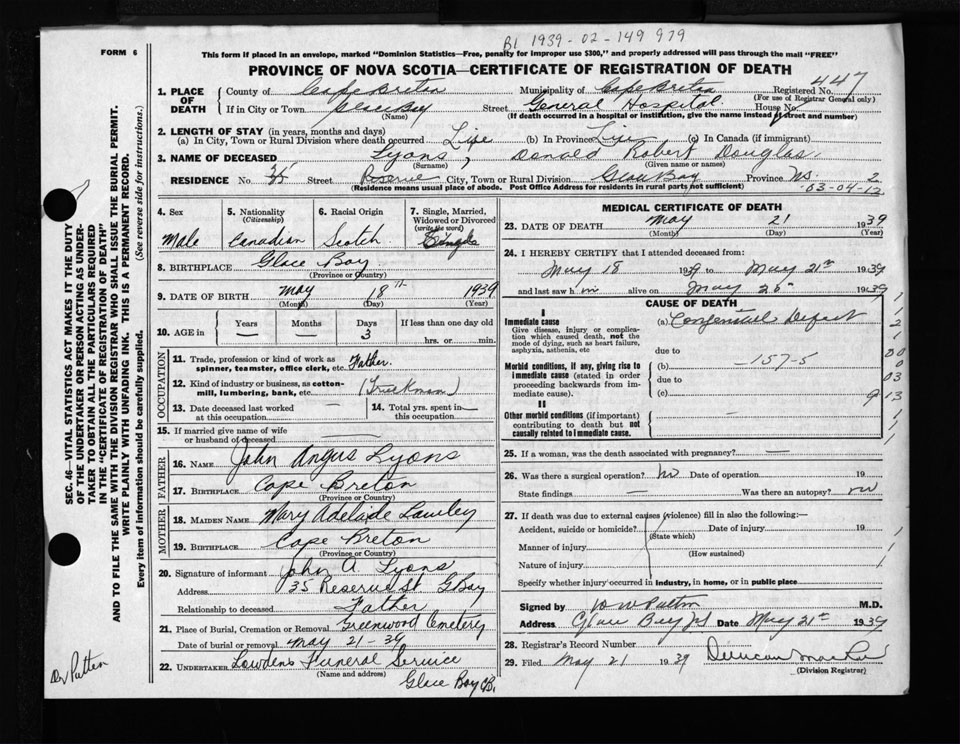 B1 1939-02-149979
FORM 6
This form if placed in an envelope, marked "Dominion Statistics—Free, penalty for improper use $300," and properly addressed will pass through the mail "FREE"
PROVINCE OF NOVA SCOTIA—CERTIFICATE OF REGISTRATION OF DEATH
1. PLACE OF DEATH { County of Cape Breton Municipality of Cape Breton Registered No. 447
(For use of Registrar General only)
If in City or Town Glace Bay Street General Hospital House No.
(Name) (If death occurred in a hospital or institution, give the name instead of street and number)
2. LENGTH OF STAY (in years, months and days)
(a) In City, Town or Rural Division where death occurred Life (b) In Province Life (c) In Canada (if immigrant)
3. NAME OF DECEASED Lyons, Donald Robert Douglas
(Surname) (Given name or names)
RESIDENCE No. 35 Street Reserve City, Town or Rural Division Glace Bay Province NS. 2
(Residence means usual place of abode. Post Office Address for residents in rural parts not sufficient) 03-04-12
4. Sex Male
5. Nationality (Citizenship) Canadian
6. Racial Origin Scotch
7. Single, Married, Widowed or Divorced (write the word) Single
8. BIRTHPLACE Glace Bay
(Province or Country)
9. DATE OF BIRTH May 18th 1939
(Month) (Day) (Year)
10. AGE in { Years — Months — Days 3 If less than one day old
hrs. or min.
OCCUPATION
11. Trade, profession or kind of work as spinner, teamster, office clerk, etc. Father
12. Kind of industry or business, as cotton-mill, lumbering, bank, etc. (Truckman)
13. Date deceased last worked at this occupation —
14. Total yrs. spent in this occupation. —
15. If married give name of wife or husband of deceased —
FATHER
16. NAME John Angus Lyons
17. BIRTHPLACE Cape Breton
(Province or Country)
MOTHER
18. MAIDEN NAME Mary Adelaide Lawley
19. BIRTHPLACE Cape Breton
(Province or Country)
20. Signature of informant John A Lyons
Address 35 Reserve St G Bay
Relationship to deceased Father
21. Place of Burial, Cremation or Removal Greenwood Cemetery
Date of burial or removal May 21-39
22. UNDERTAKER Lowdens Funeral Service
(Name and address)
Glace Bay CB.
MEDICAL CERTIFICATE OF DEATH
23. DATE OF DEATH May 21 1939
(Month) (Day) (Year)
24. I HEREBY CERTIFY that I attended deceased from:
May 18 1939 to May 21st 1939
and last saw him alive on May 20 1939
CAUSE OF DEATH
I
Immediate cause (a) Congenital Defect
Give disease, injury or complication which caused death, not the mode of dying, such as heart failure, asphyxia, asthenia, etc
due to
Morbid conditions, if any, giving rise to immediate cause (stated in order proceeding backwards from immediate cause). (b) 157-5
due to
(c)
II
Other morbid conditions (if important) contributing to death but not causally related to immediate cause.
25. If a woman, was the death associated with pregnancy? —
26. Was there a surgical operation? no Date of operation 19
State findings — Was there an autopsy? no
27. If death was due to external causes (violence) fill in also the following:—
Accident, suicide or homicide? Date of injury 19
(State which)
Manner of injury
(How sustained)
Nature of injury
Specify whether injury occurred in industry, in home, or in public place
Signed by M.D.
Address Glace Bay NS Date May 21st 1939
28. Registrar's Record Number
29. Filed May 21 1939 Duncan
(Division Registrar)
SEC. 46—VITAL STATISTICS ACT MAKES IT THE DUTY
OF THE UNDERTAKER OR PERSON ACTING AS UNDER-
TAKER TO OBTAIN ALL THE PARTICULARS REQUIRED
IN THE "CERTIFICATE OF REGISTRATION OF DEATH"
AND TO FILE THE SAME WITH THE DIVISION REGISTRAR WHO SHALL ISSUE THE BURIAL PERMIT.
WRITE PLAINLY WITH UNFADING INK. THIS IS A PERMANENT RECORD.
Every item of information should be carefully supplied. (See reverse side for instructions.)
Dr Patten